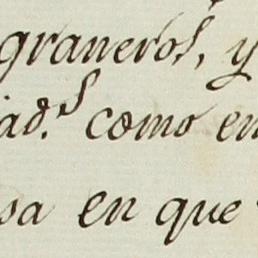 graneros, y
ad.s como en
sa en que